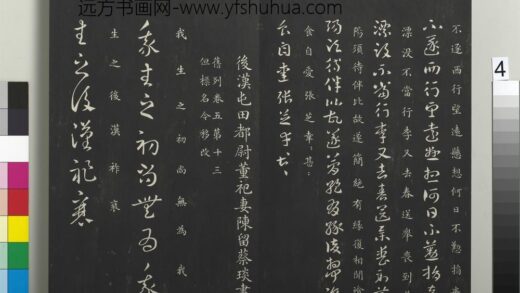 远方书画网-www.yfshuhua.com
4
不遂西行望遠懸想何日不懃捐
不遂西行望遠懸想何日不懃捐
漂没不當行李又去春送舉喪到
漂没不當行李又去春送舉喪到美
陽須待伴比故遂簡絕有緣復相聞飡
陽須待伴比故遂簡絕有緣復相聞
食自愛張芝幸〻甚〻
食自愛張芝幸〻甚〻
後漢屯田都尉董祀妻陳留蔡琰書
舊列卷五第十三
但標名今移改
我生之初尚無為我
我生之初尚無為我
生之後漢祚衰
生之後漢祚衰